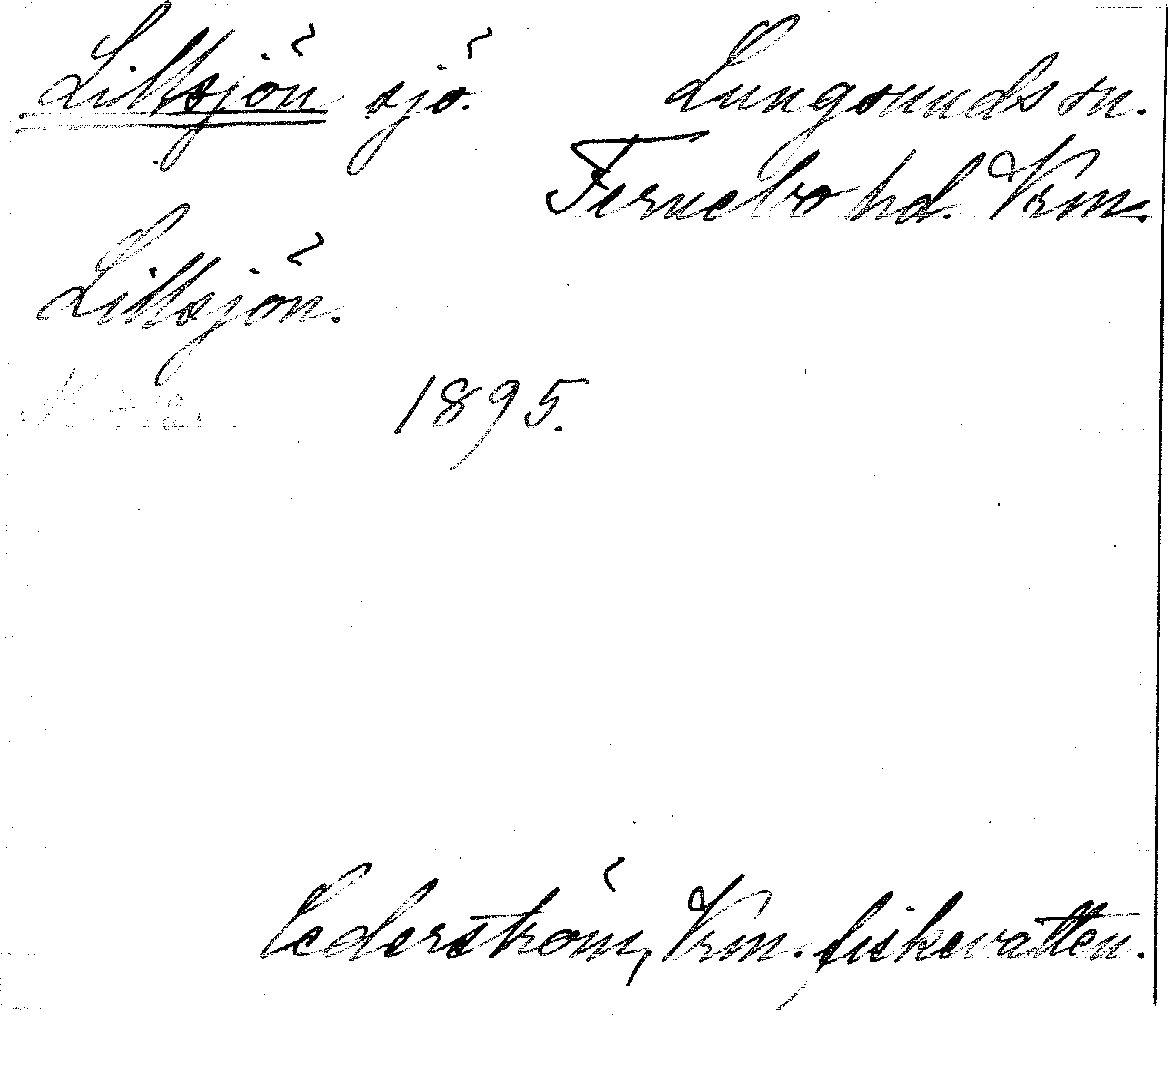 Littsjön sjö. Lungsunds sn.
Fernebo hd. Vrm.
Littsjön.
1895.
Cederström, Vrm. fiskevatten.